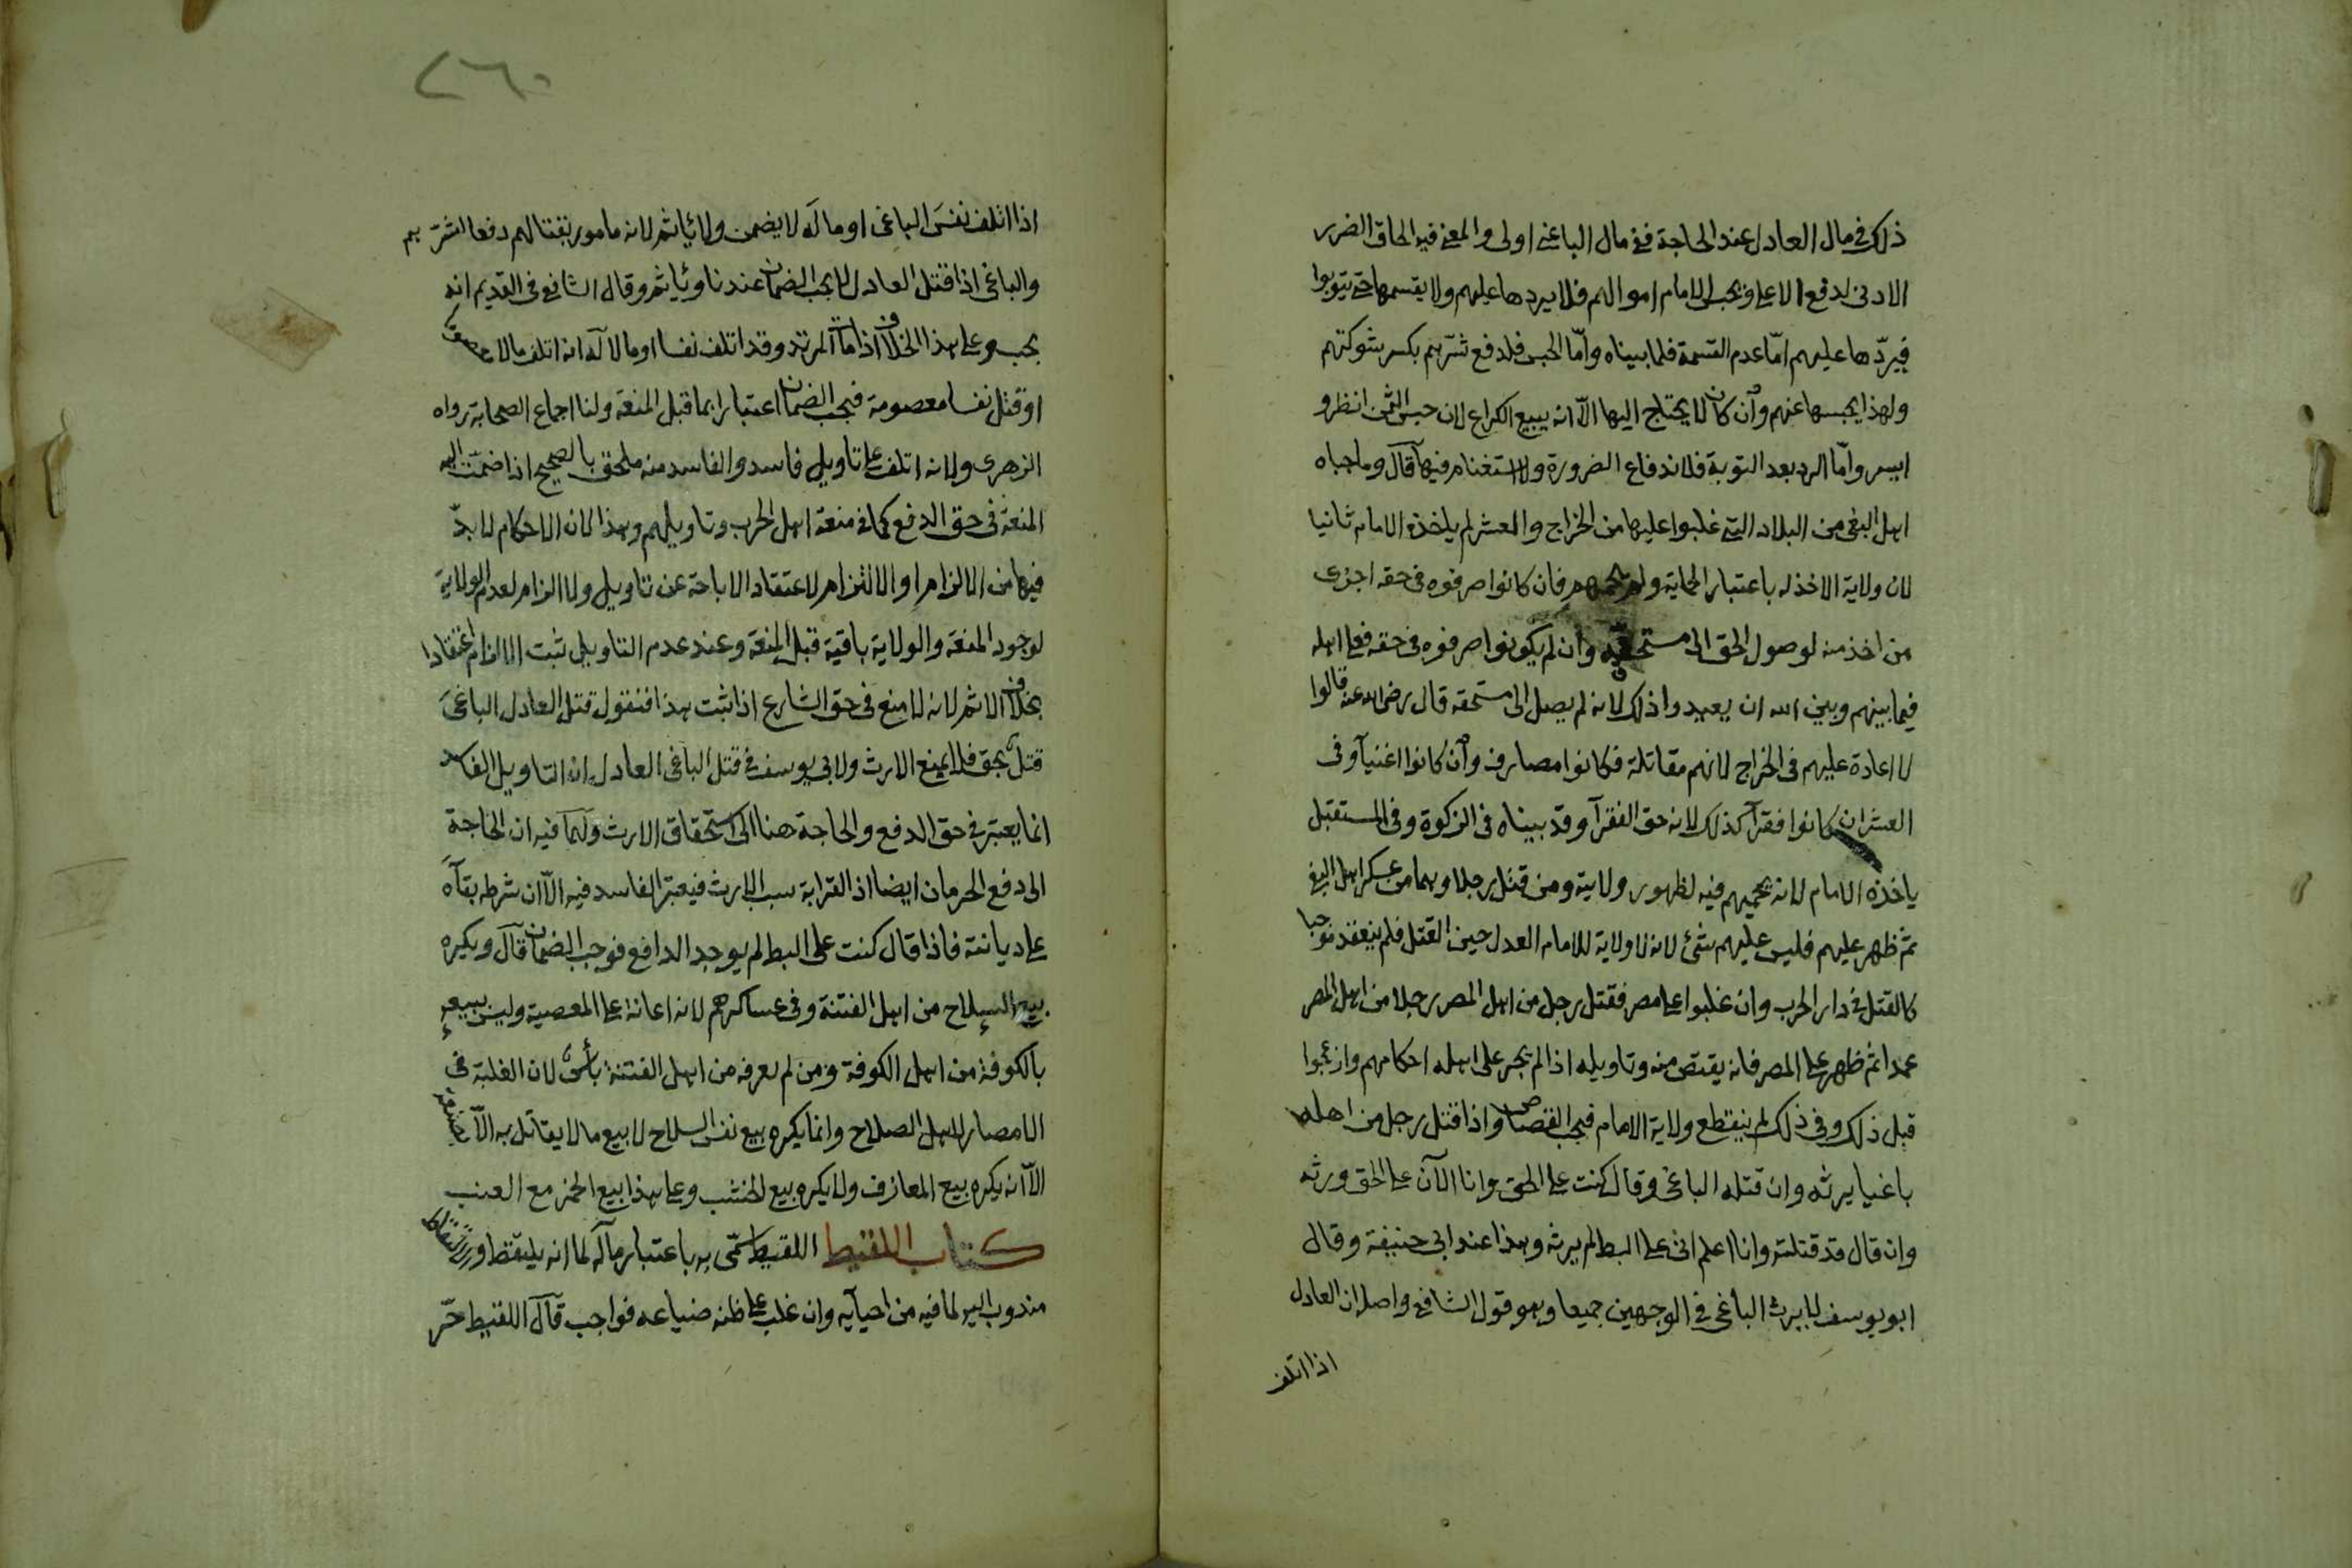 ذلك في مال العادل عند الحاجة ففي مال الباغي اولى والمعنى فيه الحاق الضرر
الادنى لدفع الاعلى ويحبس الامام اموالهم فلا يردها عليهم ولا يقسمها حتى يتوبوا
فيردّها عليهم امّا عدم القسمة فلما بيناه وامّا الحبس فلدفع شرّهم بكسر شوكتهم
ولهذا يحبسها عنهم وان كان لا يحتاج اليها الاّ انه يبيع الكراع لان حبس الثمن انظر و
ايسر وامّا الرد بعد التوبة فلاندفاع الضرورة ولا استغنام فيها قال وما جباه
اهل البغى من البلاد التي غلبوا عليها من الخراج والعشر لم ياخذه الامام ثانيا
لان ولاية الاخذ له باعتبار الحماية ولم يحمهم فان كانوا صرفوه في حقه اجزى
من اخذ منه لوصول الحق الى مستحقّه وان لم يكونوا صرفوه في حقه فعلى اهله
فيما بينهم وبين الله ان يعيدوا ذلك لانه لم يصل الى مستحقه قال رضي الله عنه قالوا
لا اعادة عليهم في الخراج لانهم مقاتلة فكانوا مصارف وان كانوا اغنيآ وفى
العشر ان كانوا فقرآ كذلك لانه حق الفقرآ وقد بيناه في الزكوة وفى المستقبل
ياخذه الامام لانه يحميهم فيه لظهور ولايته ومن قتل رجلا وهما من عسكر اهل البغى
ثمّ ظهر عليهم فليس عليهم شئ لانه لا ولاية للامام العدل حين القتل فلم ينعقد موجبا
كالقتل في دار الحرب وان غلبوا على مصر فقتل رجل من اهل المصر رجلا من اهل المصر
عمدا ثم ظهر على المصر فانه يقتص منه وتاويله اذا لم يجر على اهله احكامهم وازعجوا
قبل ذلك وفى ذلك لم ينقطع ولاية الامام فيجب القصاص واذا قتل رجل من اهله
باغيا يرثه وان قتله الباغى وقال كنت على الحق وانا الآن على الحق ورثه
وان قال قد قتلته وانا اعلم انى على البط لم يرثه وهذا عند ابى حنيفة وقال
ابو يوسف لا يرث الباغى في الوجهين جميعا وهو قول الشافع واصله ان العادل
اذا اتلف
٢٦٠
اذا اتلف نفسَ الباغى او ماله لا يضمن ولا ياثم لانه مامور بقتالهم دفعا لشرّهم
والباغى اذا قتل العادل لا يجب الضمان عندنا وياثم وقال الشافع في القديم انه
يجب وعلى هذا الخلاف اذا مات المرتد وقد اتلف نفسا او مالا له انه اتلف مالا معصوما
او قتل نفسا معصومة فيجب الضمان اعتبارا بما قبل المنعة ولنا اجماع الصحابة رواه
الزهرى ولانه اتلف على تاويل فاسد والفاسد منه ملحق بالصحيح اذا ضمّت اليه
المنعة في حق الدفع كما في منعة اهل الحرب وتاويلهم وهذا لان الاحكام لا بدّ
فيها من الالزام او الالتزام لاعتقاد الاباحة عن تاويل ولا الزام لعدم الولاية
لوجود المنعة والولاية باقية قبل المنعة وعند عدم التاويل ثبت الالتزام اعتقادا
بخلاف الاثم لانه لا منع في حق الشارع اذا ثبت هذا فنقول قتل العادل الباغىَ
قتلٌ بحق فلا يمنع الارث ولابى يوسف في قتل الباغى العادل ان التاويل الفاسد
انما يعتبر في حق الدفع والحاجة ههنا الى استحقاق الارث ولهما فيه ان الحاجة
الى دفع الحرمان ايضا اذ القرابة سبب الارث فيعتبر الفاسد فيه الاّ ان شرطه بقآءه
على ديانته فاذا قال كنت على البط لم يوجد الدافع فوجب الضمان قال ويكره
بيع السلاح من اهل الفتنة وفى عساكرهم لانه اعانة على المعصية وليس ببيعه
بالكوفة من اهل الكوفة ومن لم يعرفه من اهل الفتنة بأس لان الغلبة في
الامصار لاهل الصلاح وانما يكره بيع نفس السلاح لا بيع ما لا يقاتل به الاّ بصنعة
الاّ انه يكره بيع المعازف ولا يكره بيع الخشب وعلى هذا بيع الخمر مع العنب
كتاب اللقيط اللقيط سمّى به باعتبار مآله لما انه يلقط والالتقاط
مندوب اليه لما فيه من احيآيه وان غلب على ظنه ضياعه فواجب قال اللقيط حّر